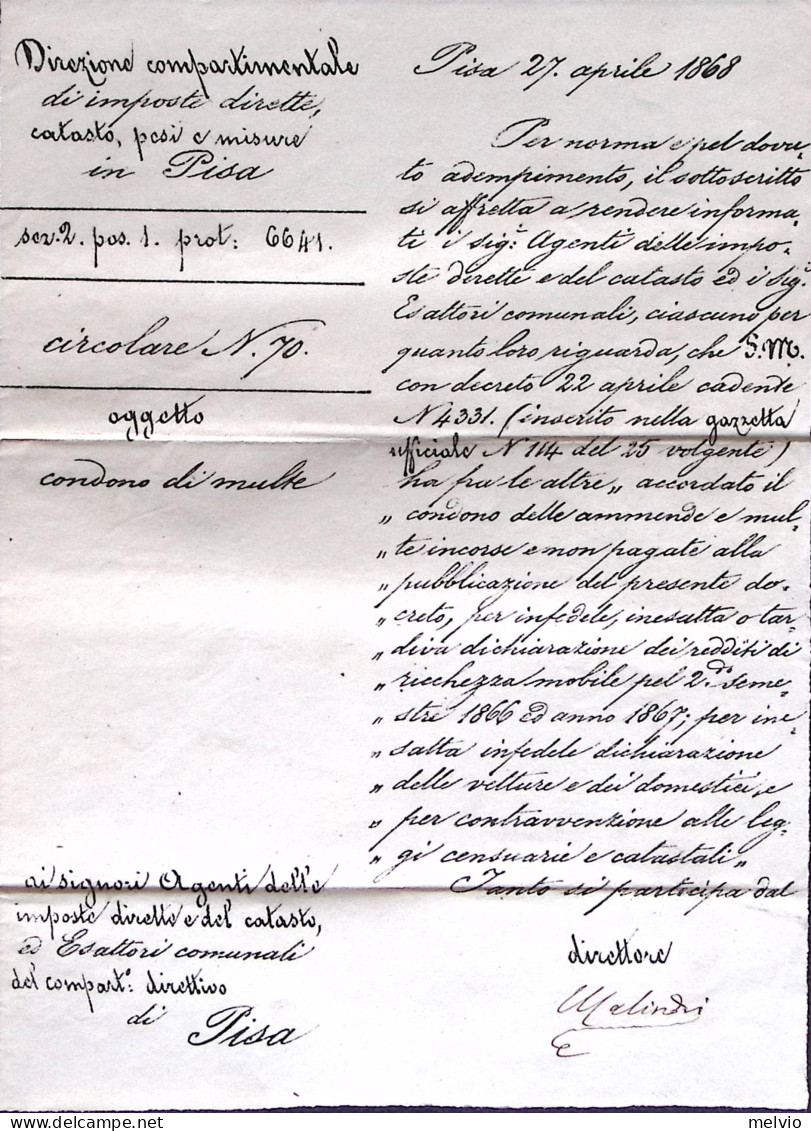 Direzione compartimentale
di imposte dirette,
catasto, pesi e misure
in Pisa
sez. 2. pos. 1. prot: 6641.
circolare N. 70.
oggetto
condono di multe
ai signori Agenti delle
imposte dirette e del catasto,
ed Esattori comunali
del compart°: direttivo
di Pisa
Pisa 27. aprile 1868
Per norma e pel dovu-
to adempimento, il sottoscritto
si affretta a rendere informa-
ti i sig.ri Agenti delle impo-
ste dirette e del catasto ed i Sig.ri
Esattori comunali, ciascuno per
quanto loro riguarda, che S. M.
con decreto 22 aprile cadente
N 4331. (inserito nella gazzetta
ufficiale N 114 del 25 volgente)
ha fra le altre „ accordato il
„ condono delle ammende e mul-
„ te incorse e non pagate alla
„ pubblicazione del presente de-
„ creto, per infedele, inesatta o tar-
„ diva dichiarazione dei redditi di
„ ricchezza mobile pel 2do seme-
„ stre 1866 ed anno 1867; per ine-
„ satta infedele dichiarazione
„ delle vetture e dei domestici, e
„ per contravvenzione alle leg-
„ gi censuarie e catastali „
Tanto si partecipa dal
direttore
Malindri
delcampe.net
melvio